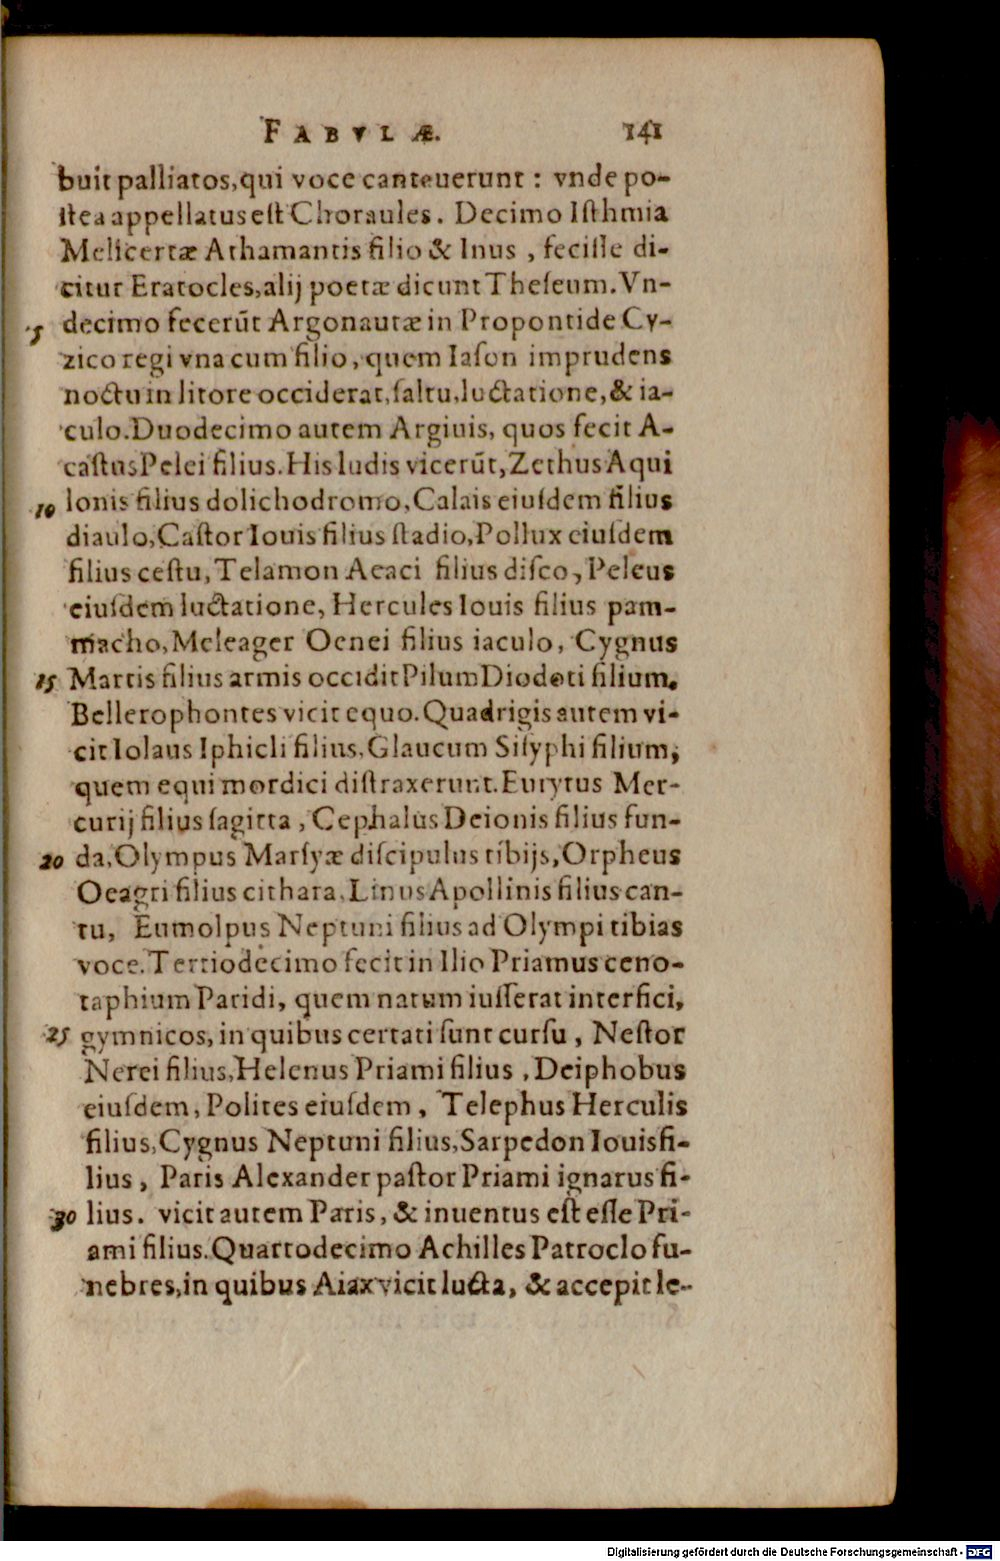 FABVLÆ. 141
buit palliatos, qui voce canteuerunt : vnde po-
ſtea appellatus eſt Choraules. Decimo Iſthmia
Melicertæ Athamantis filio & Inus, feciſſe di-
citur Eratocles, alij poetæ dicunt Theſeum. Vn-
5 decimo fecerūt Argonautæ in Propontide Cy-
zico regi vna cum filio, quem Iaſon imprudens
noctu in litore occiderat, ſaltu, luctatione, & ia-
culo. Duodecimo autem Argiuis, quos fecit A-
caſtus Pelei filius. His ludis vicerūt, Zethus Aqui
10 lonis filius dolichodromo, Calais eiuſdem filius
diaulo, Caſtor Iouis filius ſtadio, Pollux eiuſdem
filius ceſtu, Telamon Aeaci filius diſco, Peleus
eiuſdem luctatione, Hercules Iouis filius pam-
macho, Meleager Oenei filius iaculo, Cygnus
15 Martis filius armis occidit Pilum Diodoti filium.
Bellerophontes vicit equo. Quadrigis autem vi-
cit Iolaus Iphicli filius, Glaucum Siſyphi filium,
quem equi mordici diſtraxerunt. Eurytus Mer-
curij filius ſagitta, Cephalus Deionis filius fun-
20 da, Olympus Marſyæ diſcipulus tibijs, Orpheus
Oeagri filius cithara, Linus Apollinis filius can-
tu, Eumolpus Neptuni filius ad Olympi tibias
voce. Tertiodecimo fecit in Ilio Priamus ceno-
taphium Paridi, quem natum iuſſerat interfici,
25 gymnicos, in quibus certati ſunt curſu, Neſtor
Nerei filius, Helenus Priami filius, Deiphobus
eiuſdem, Polites eiuſdem, Telephus Herculis
filius, Cygnus Neptuni filius, Sarpedon Iouis fi-
lius, Paris Alexander paſtor Priami ignarus fi-
30 lius. vicit autem Paris, & inuentus eſt eſſe Pri-
ami filius. Quartodecimo Achilles Patroclo fu-
nebres, in quibus Aiax vicit lucta, & accepit le-
Digitalisierung gefördert durch die Deutsche Forschungsgemeinschaft - DFG